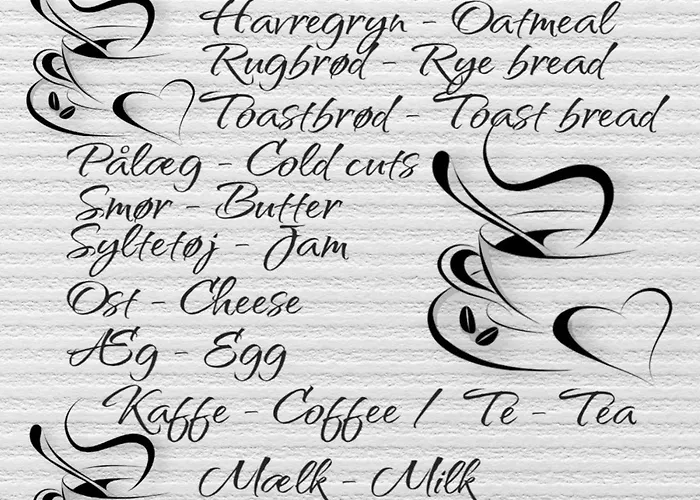 Havregryn - Oatmeal
Rugbrød - Rye bread
Toastbrød - Toast bread
Pålæg - Cold cuts
Smør - Butter
Syltetøj - Jam
Ost - Cheese
Æg - Egg
Kaffe - Coffee / Te - Tea
Mælk - Milk